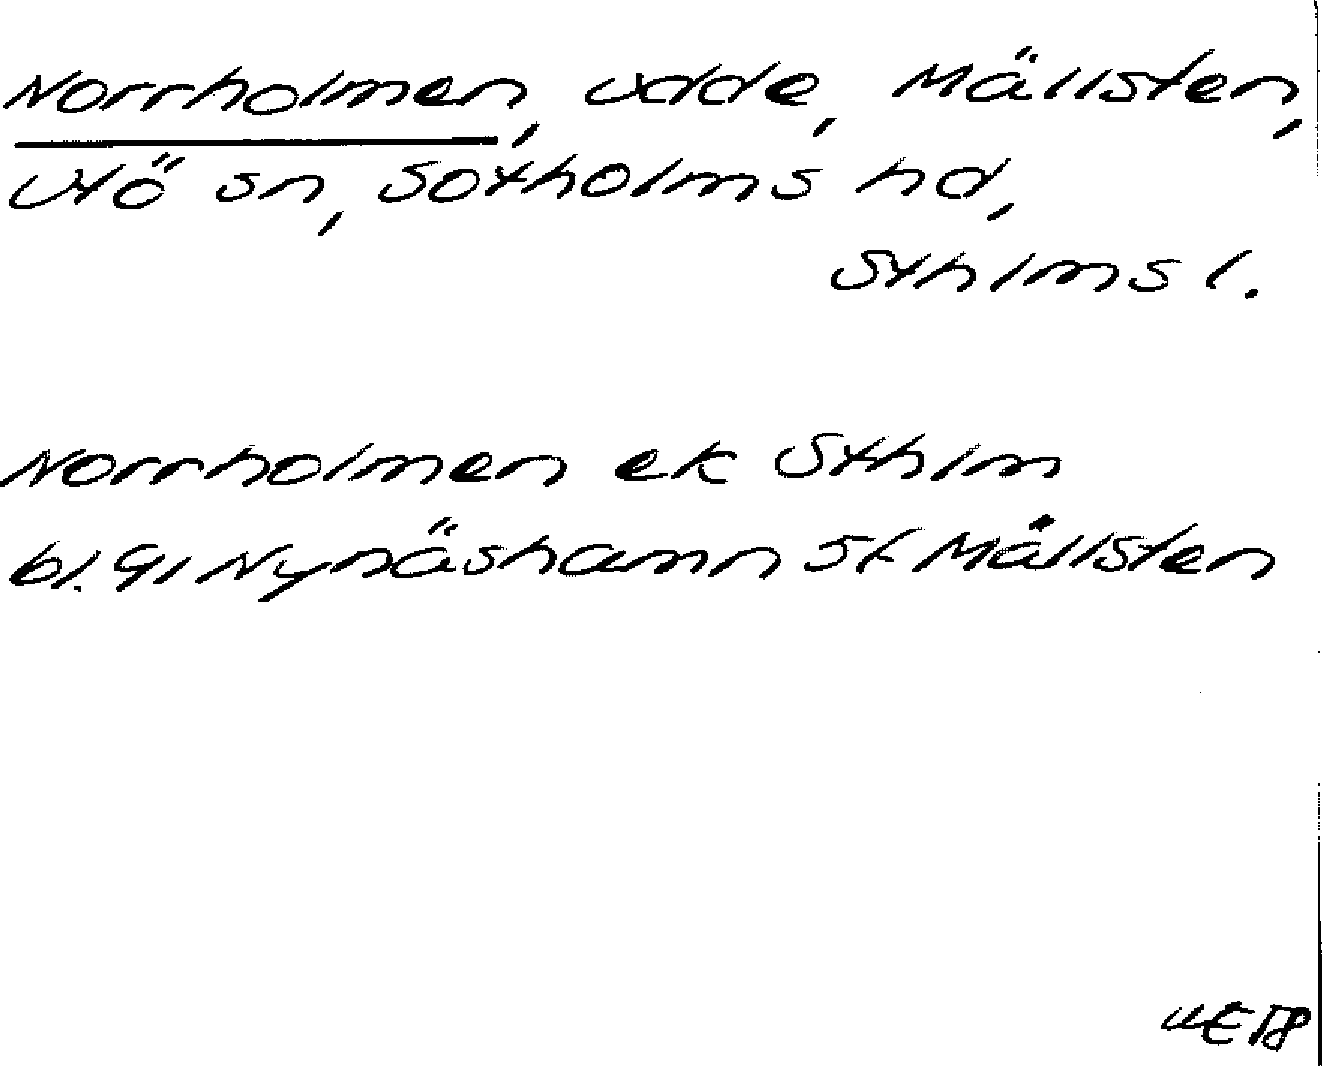 Norrholmen, udde, Mällsten,
Utö sn, Sotholms hd,
Sthlms l.
Norrholmen ek Sthlm
bl. 91 Nynäshamn Sf Mällsten